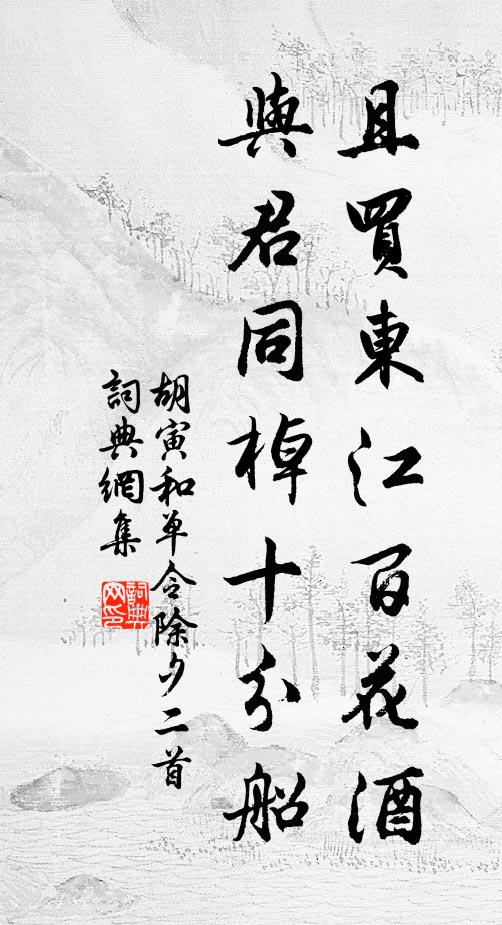 且買東江百花酒
與君同棹十分船
胡寅和单令除夕二首
詞典網集
詞典網印